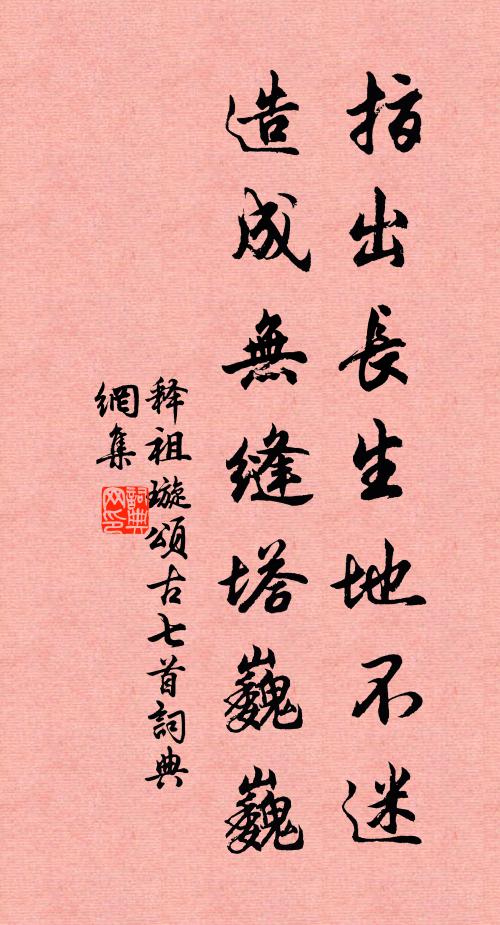 指出長生地不迷
造成無縫塔巍巍
释祖璇頌古七首詞典
網集
詞典
网印